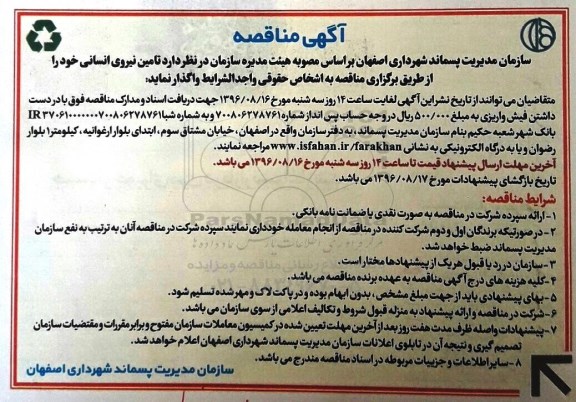 آگهی مناقصه
سازمان مدیریت پسماند شهرداری اصفهان براساس مصوبه هیئت مدیره سازمان در نظر دارد تامین نیروی انسانی خود را
از طریق برگزاری مناقصه به اشخاص حقوقی واجدالشرایط واگذار نماید:
متقاضیان می توانند از تاریخ نشر این آگهی لغایت ساعت ۱۴ روز سه شنبه مورخ ۱۳۹۶/۰۸/۱۶ جهت دریافت اسناد و مدارک مناقصه فوق با در دست
داشتن فیش واریزی به مبلغ ۵۰۰/۰۰۰ ریال در وجه حساب پس انداز شماره ۷۰۰۸۰۶۲۷۸۷۶۱ و به شماره شبا IR ۳۷۰۶۱۰۰۰۰۰۰۰۷۰۰۸۰۶۲۷۸۷۶۱
بانک شهر شعبه حکیم بنام سازمان مدیریت پسماند، به دفتر سازمان واقع در اصفهان، خیابان مشتاق سوم، ابتدای بلوار ارغوانیه، کیلومتر۱ بلوار
رضوان و یا به درگاه الکترونیکی به نشانی www.isfahan.ir/farakhan مراجعه نمایند.
آخرین مهلت ارسال پیشنهاد قیمت تا ساعت ۱۴ روز سه شنبه مورخ ۱۳۹۶/۰۸/۱۶ می باشد.
تاریخ بازگشای پیشنهادات مورخ ۱۳۹۶/۰۸/۱۷ می باشد.
شرایط مناقصه:
۱-ارائه سپرده شرکت در مناقصه به صورت نقدی یا ضمانت نامه بانکی.
۲- در صورتیکه برندگان اول و دوم شرکت کننده در مناقصه از انجام معامله خودداری نمایند سپرده شرکت در مناقصه آنان به ترتیب به نفع سازمان
مدیریت پسماند ضبط خواهد شد.
۳-سازمان در رد یا قبول هر یک از پیشنهادها مختار است.
۴-کلیه هزینه های درج آگهی مناقصه به عهده برنده مناقصه می باشد.
۵-بهای پیشنهادی باید از جهت مبلغ مشخص ، بدون ابهام بوده و در پاکت لاک و مهر شده تسلیم شود.
۶-شرکت در مناقصه و ارائه پیشنهاد به منزله قبول شروط و تکالیف اعلامی از سوی سازمان می باشد.
۷-پیشنهادات واصله ظرف مدت هفت روز بعد از آخرین مهلت تعیین شده در کمیسیون معاملات سازمان مفتوح و برابر مقررات و مقتضیات سازمان
تصمیم گیری و نتیجه آن در تابلوی اعلانات سازمان مدیریت پسماند شهرداری اصفهان اعلام خواهد شد.
۸-سایر اطلاعات و جزییات مربوطه در اسناد مناقصه مندرج می باشد.
سازمان مدیریت پسماند شهرداری اصفهان